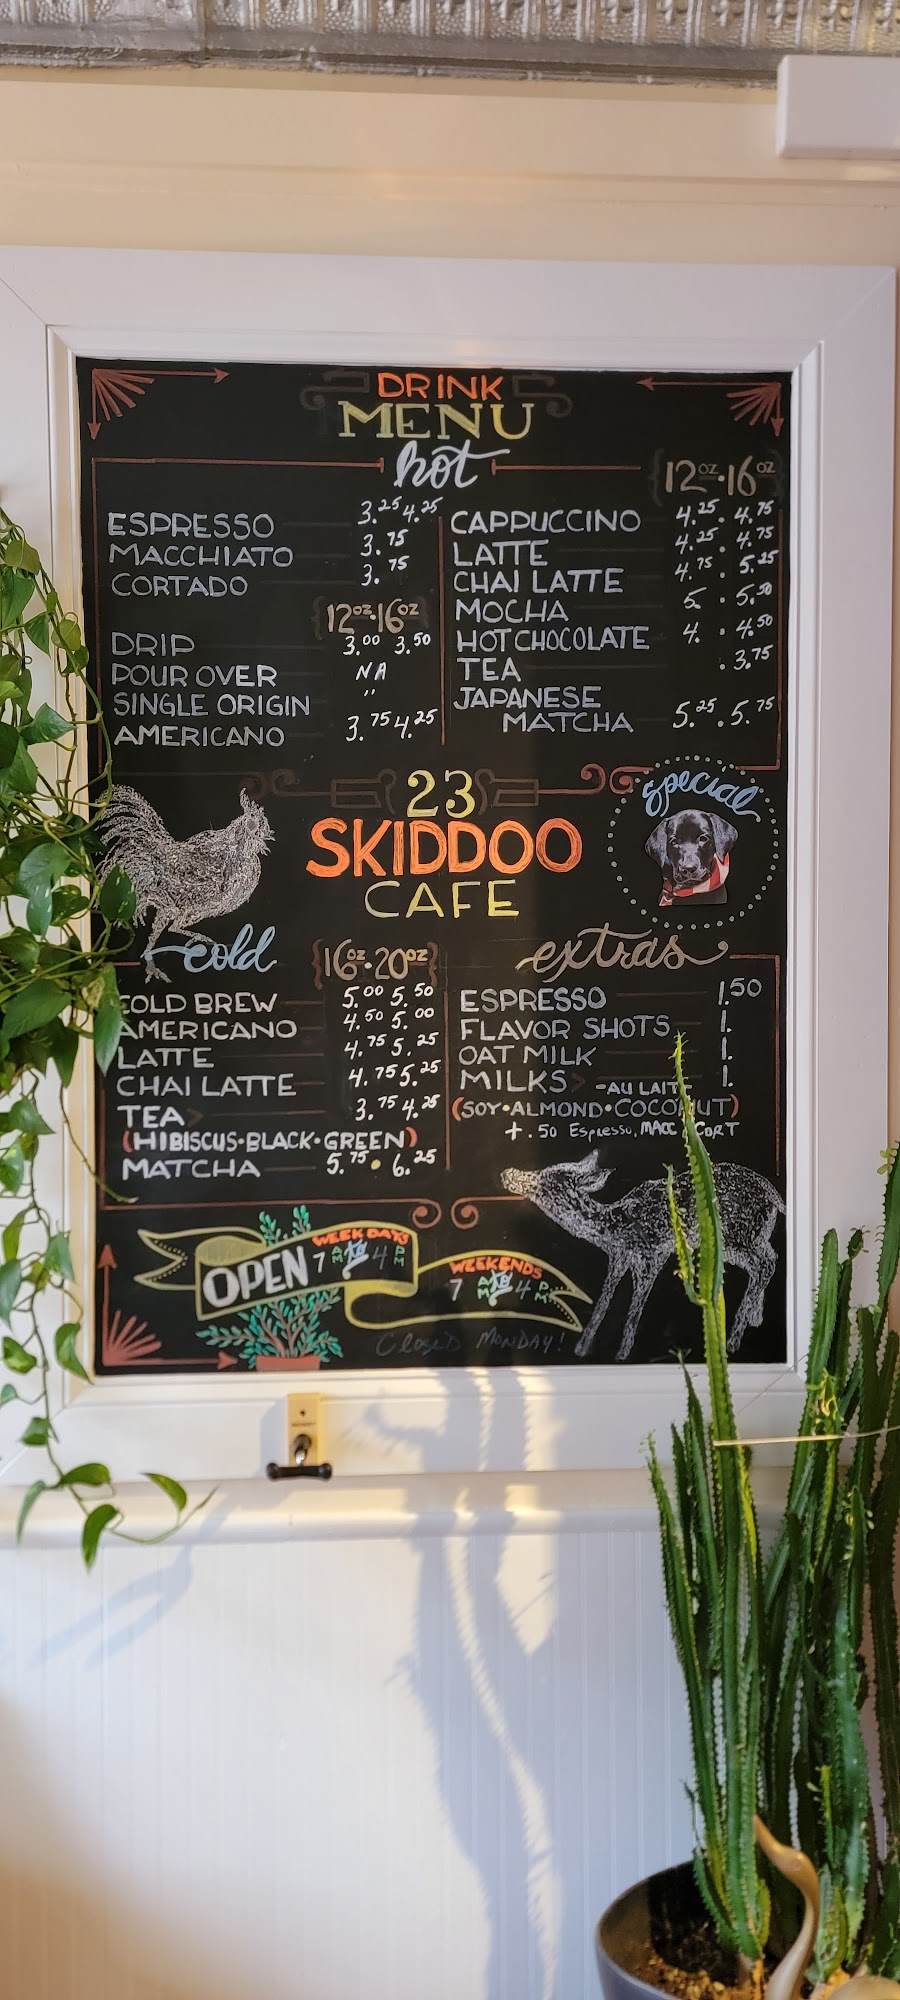 DRINK
MENU
hot
ESPRESSO 3.25 4.25
MACCHIATO 3.75
CORTADO 3.75
12oz·16oz
DRIP 3.00 3.50
POUR OVER NA
SINGLE ORIGIN "
AMERICANO 3.75 4.25
12oz·16oz
CAPPUCCINO 4.25 · 4.75
LATTE 4.25 · 4.75
CHAI LATTE 4.75 · 5.25
MOCHA 5. · 5.50
HOT CHOCOLATE 4. · 4.50
TEA · 3.75
JAPANESE
MATCHA 5.25 · 5.75
23
SKIDDOO
CAFE
special
cold 16oz·20oz
COLD BREW 5.00 5.50
AMERICANO 4.50 5.00
LATTE 4.75 5.25
CHAI LATTE 4.75 5.25
TEA 3.75 4.25
(HIBISCUS·BLACK·GREEN)
MATCHA 5.75 · 6.25
extras
ESPRESSO 1.50
FLAVOR SHOTS 1.
OAT MILK 1.
MILKS > -AU LAIT 1.
(SOY·ALMOND·COCONUT)
+.50 Espresso, MACC, CORT
OPEN
WEEKDAYS
7 AM to 4 PM
WEEKENDS
7 AM to 4 PM
Closed Monday!